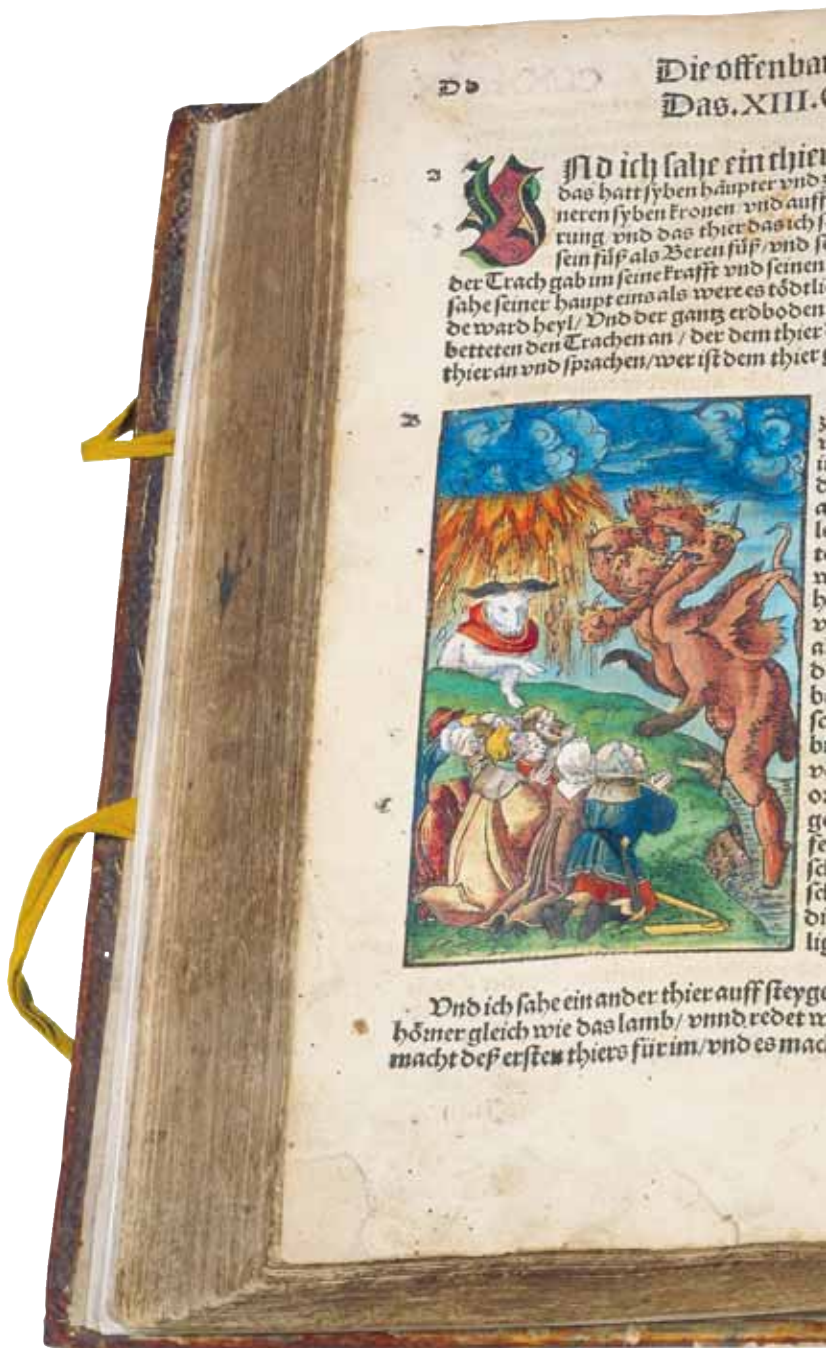 Db
Die offenba
Das.XIII.
a
VNd ich sahe ein thier
das hatt syben häupter vnd
neren syben kronen vnd auff
rung vnd das thier das ich s
sein füß als Beren füß/vnd se
der Trach gab im seine krafft vnd seinen
sahe seiner haupt eins als were es tödtli
de ward heyl/ Vnd der gantz erdboden
betteten den Trachen an / der dem thier
thier an vnd sprachen/wer ist dem thier g
B
z
v
in
d
a
le
te
w
h
v
a
d
b
sc
b
v
or
C
ge
fe
sch
sch
di
lig
Vnd ich sahe ein ander thier auff steyge
hörner gleich wie das lamb/ vnnd redet w
macht deß ersten thiers für im/vnd es mac